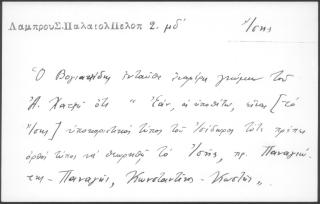 ΛαμπρουΣ.ΠαλαιολΠελοπ 2. μδ'
Ἴσης
Ὁ Βογιατζίδης ἐνταῦθα ἀναφέρει γνώμην τοῦ
Ἀ. Χατζῆ ὅτι "Ἐάν, ὡς ὑποθέτω, εἶναι [τὸ
Ἴσης] ὑποκοριστικὸς τύπος τοῦ Ἰσίδωρος τότε πρέπει
ὀρθὸς τύπος νὰ θεωρηθῇ τὸ Ἰσῆς, πρ. Παναγιώ-
της - Παναγῆς, Κωνσταντῖνος - Κωστῆς".